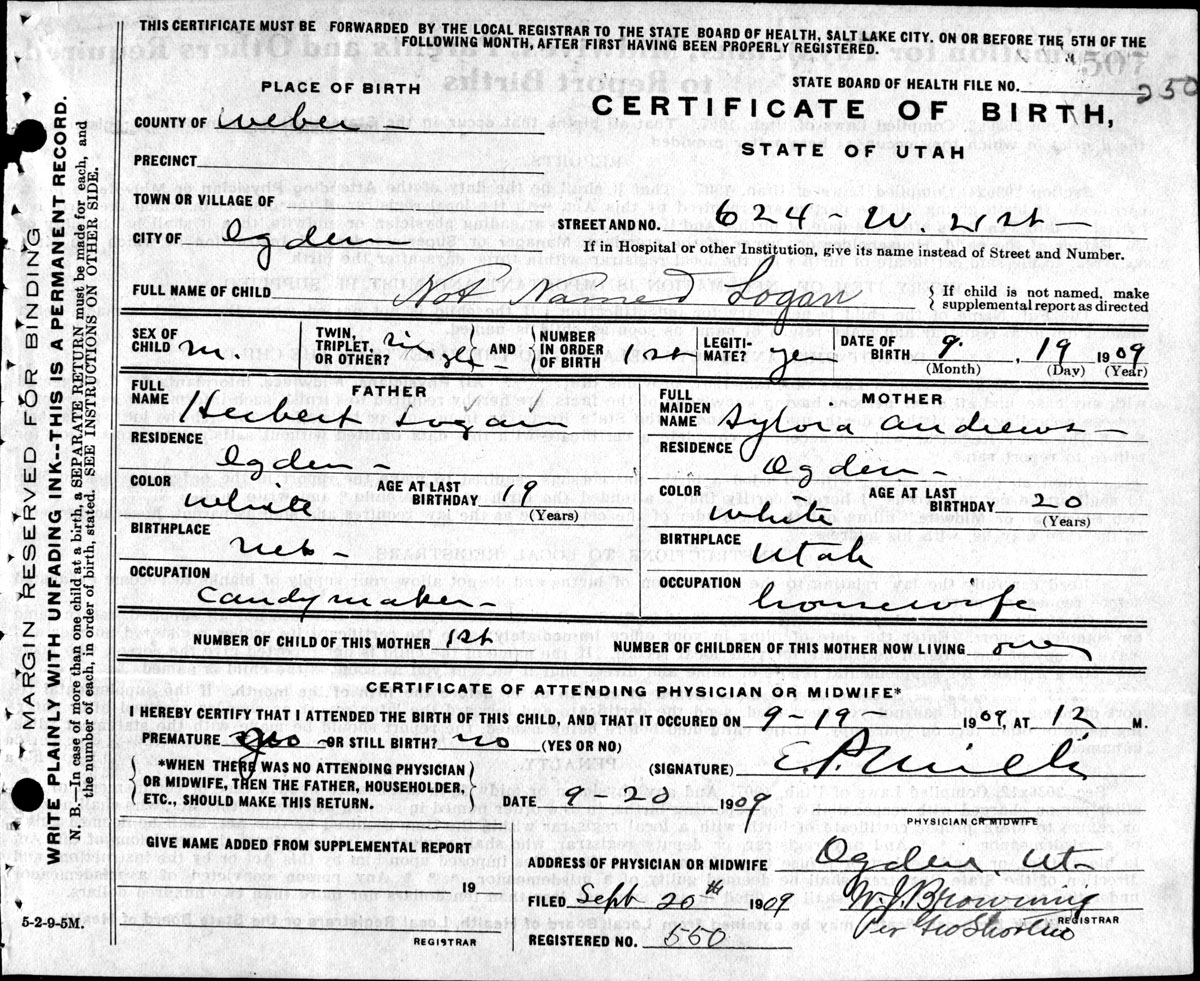 THIS CERTIFICATE MUST BE FORWARDED BY THE LOCAL REGISTRAR TO THE STATE BOARD OF HEALTH, SALT LAKE CITY. ON OR BEFORE THE 5TH OF THE
FOLLOWING MONTH, AFTER FIRST HAVING BEEN PROPERLY REGISTERED.
PLACE OF BIRTH
STATE BOARD OF HEALTH FILE NO. 250
COUNTY OF Weber
CERTIFICATE OF BIRTH,
STATE OF UTAH
PRECINCT
TOWN OR VILLAGE OF
STREET AND NO. 624 - W. 21st
CITY OF Ogden
If in Hospital or other Institution, give its name instead of Street and Number.
FULL NAME OF CHILD Not Named Logan
{ If child is not named, make
supplemental report as directed
SEX OF CHILD m
TWIN, TRIPLET, OR OTHER? single
AND
NUMBER IN ORDER OF BIRTH 1st
LEGITIMATE? yes
DATE OF BIRTH 9. , 19 1909
(Month) (Day) (Year)
FATHER
FULL NAME Herbert Logan
RESIDENCE
Ogden -
COLOR white
AGE AT LAST BIRTHDAY 19
(Years)
BIRTHPLACE
Neb -
OCCUPATION
Candymaker -
MOTHER
FULL MAIDEN NAME Sylvia Andrews
RESIDENCE
Ogden -
COLOR white
AGE AT LAST BIRTHDAY 20
(Years)
BIRTHPLACE
Utah
OCCUPATION
housewife
NUMBER OF CHILD OF THIS MOTHER 1st
NUMBER OF CHILDREN OF THIS MOTHER NOW LIVING one
CERTIFICATE OF ATTENDING PHYSICIAN OR MIDWIFE*
I HEREBY CERTIFY THAT I ATTENDED THE BIRTH OF THIS CHILD, AND THAT IT OCCURED ON 9-19 1909, AT 12 M.
PREMATURE OR STILL BIRTH? no (YES OR NO)
*WHEN THERE WAS NO ATTENDING PHYSICIAN
OR MIDWIFE, THEN THE FATHER, HOUSEHOLDER,
ETC., SHOULD MAKE THIS RETURN.
(SIGNATURE) E. P. Mills
DATE 9 20 1909
PHYSICIAN OR MIDWIFE
GIVE NAME ADDED FROM SUPPLEMENTAL REPORT
19
REGISTRAR
ADDRESS OF PHYSICIAN OR MIDWIFE Ogden Ut
FILED Sept 20th 1909 W. J. Browning
REGISTRAR
REGISTERED NO. 550 Per Geo Shorten
5-2-9-5M.
MARGIN RESERVED FOR BINDING
WRITE PLAINLY WITH UNFADING INK--THIS IS A PERMANENT RECORD.
N. B.—In case of more than one child at a birth, a SEPARATE RETURN must be made for each, and
the number of each, in order of birth, stated. SEE INSTRUCTIONS ON OTHER SIDE.